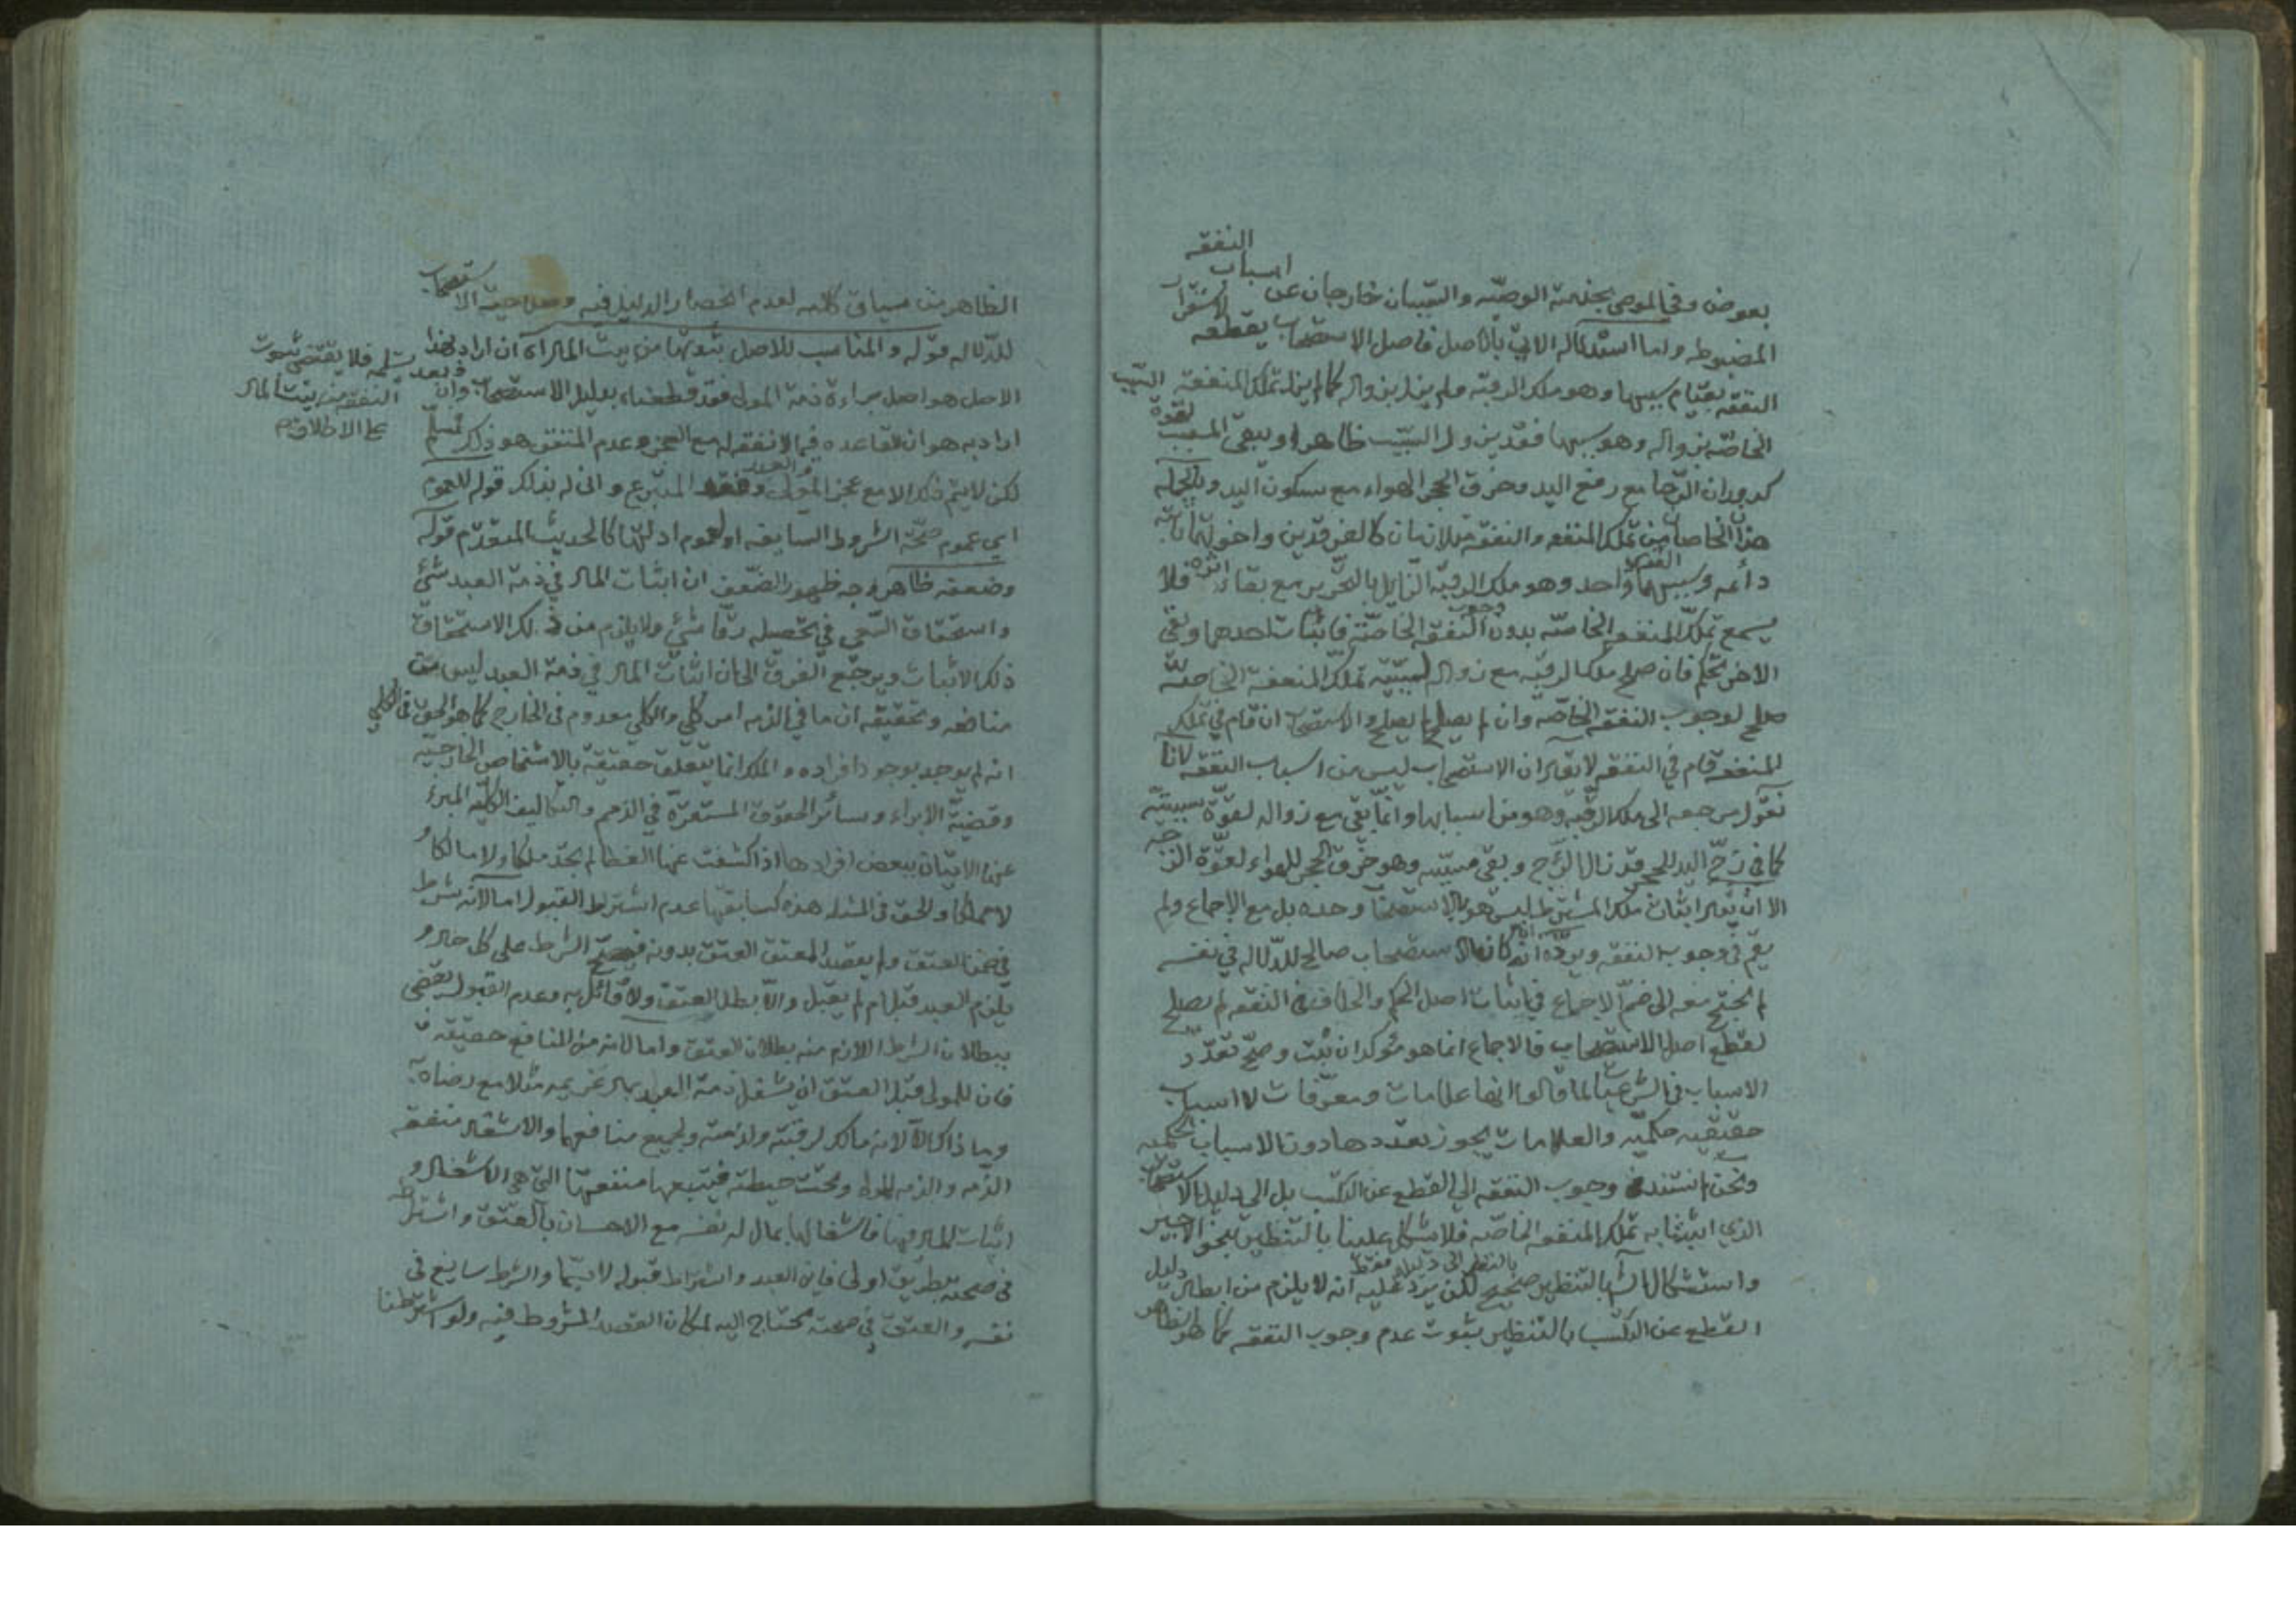 بعوض وفي الموصى بخدمته الوصيّه والسّببان خارجان عن اسباب النفقه
المضبوطه واما استدلاله الاتي بالاصل فاصل الاستصحاب يقطعه
النفقه بقيام سببها وهو ملك الرقبه ولم يزل بزواله كما لم يزل تملك المنفعة
الخاصّه بزواله وهو سببها فقد يزول السّبب ظاهرا ويبقى المسبب لقوة السّبب
كدوران الرّحا مع رفع اليد وخرق الحجر الهواء مع سكون اليد وبالجمله
هذا الخاصان من تملك المنفعه والنفقه متلازمان كالفرقدين واخوتهما ثابته
دائمه وسببهما واحد وهو ملك الرقبة الزّايل بالتّحرير مع بقاء اثره فلا
يسمع تملّك المنفعه الخاصّه بدون وجوب النّفقه الخاصّة فاثبات احدهما ونفي
الاخر تحكّم فان صلح ملك الرقبه مع زواله لسببيّة تملّك المنفعة الخاصّه
صلح لوجوب النفقه الخاصّه وان لم يصلح لم يصلح والاستصحاب ان قام في تملك
المنفعه قام في النفقه لا يقال ان الاستصحاب ليس من اسباب النفقه لانا
نقول مرجعه الى ملك الرقبه وهو من اسبابها وانما بقي مع زواله لقوّة سببيته
كما في زجّ اليد للحجر قد زال الزّج وبقي مسبّبه وهو خرق الحجر للهواء لقوّة الزّجه
الا ان يقال اثبات ملك المشترط ليس هو بالاستصحاب وحده بل مع الاجماع ولم
يقم في وجوب النفقه ويردّه انّه ان كان الاستصحاب صالح للدّلاله في نفسه
لم نحتج معه الى ضمّ الاجماع في اثبات اصل الحكم والخلاف في النفقه لم يصلح
لقطع اصل الاستصحاب فالاجماع انما هو مؤكد ان ثبت وصحّ تعدّد
الاسباب في الشرعيّات لما قالوا انها علامات ومعرّفات لا اسباب
حقيقيه حكميّه والعلامات يجوز تعددها دون الاسباب الحكميه
ونحن لم نستند في وجوب النفقه الى القطع عن التكسب بل الى دليل الاستصحاب
الذي اثبتنا به تملك المنفعه الخاصّه فلا يشكل علينا بالتنظير بنحو الاجير
واستشكال الش بالتنظير صحيح بالنظر الى دليله فقط لكن يرد عليه انه لا يلزم من ابطال دليل
القطع عن التكسب بالتنظير ثبوت عدم وجوب النفقه كما هو الظاهر
الظاهر من سياق كلامه لعدم انحصار الدليل فيه وصلاحية الاستصحاب
للدّلاله قوله والمناسب للاصل ثبوتها من بيت المال اه ان اراد بهذا
الاصل هو اصل براءة ذمة المولى فقد قطعناه بدليل الاستصحاب وبعد تسليمه فلا يقتضي ثبوت
النفقه من بيت المال
على الاطلاق م
وان
اراد به هو ان القاعده فيما لا نفقه له مع العجز وعدم المنفق هو ذلك نسلّم
لكن لا يتم ذلك الا مع عجز المولى والعبد وفقد المتبرع وانى له بذلك قوله للعموم
اي عموم صحّة الشروط السايغه او لعموم ادلّتها كالحديث المتقدّم قوله
وضعفه ظاهر وجه ظهور الضّعف ان اثبات المال في ذمة العبد شئ
واستحقاق السّعي في تحصيله رقّا شئ ولا يلزم من ذلك الاستحقاق
ذلك الاثبات ويرجع الفرق الى ان اثبات المال في ذمة العبد ليس من
منافعه وتحقيقه ان ما في الذمه امر كلّي والكلي معدوم في الخارج كما هو الحق في الكلّي
انه لم يوجد بوجود افراده والملك انما يتعلق حقيقة بالاشخاص الخارجيّه
وقضيّة الابراء وسائر الحقوق المستقرّة في الذمم والتكاليف الكليّه المبرء
عنها الاتيان ببعض افرادها اذا كشفت عنها الغطا لم تجد ملكا ولا مالكا و
لا مملوكا والحق في المسئله هذه كسابقتها عدم اشتراط القبول اما لانّه شرط
في ضمن العتق ولم يقصد المعتق العتق بدونه فيصحّ الشرط على كل حال و
يلزم العبد قبل ام لم يقبل والّا بطل العتق ولا قائل به وعدم القبول يقضي
ببطلان الشرط اللازم منه بطلان العتق واما لانه من المنافع حقيقة
فان للمولى قبل العتق ان يشغل ذمة العبد بمال غريمه مثلا مع رضاه
وما ذاك الّا لانه مالك لرقبته ولذمته ولجميع منافعهما والاشغال منفعة
الذّمه والذمه للمولى وتحت حيطته فيتبعها منفعتها التي هي الاشغال و
اثبات المال فيها فاشغالها بمال له نفسه مع الاحسان بالعتق واشتراطه
في صحته بطريق اولى فاين العبد واشتراط قبوله لا سيّما والشرط سايغ في
نفسه والعتق في صحته محتاج اليه لمكان القصد المشروط فيه ولو اشترطنا